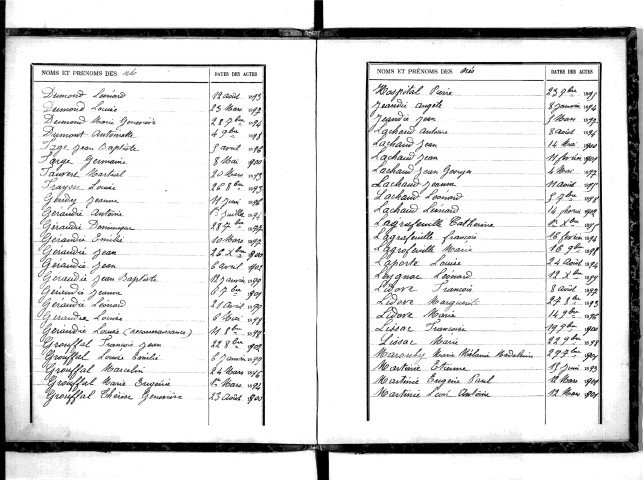 NOMS ET PRÉNOMS DES nés
DATES DES ACTES
Dumond Léonard 12 août 1893
Dumond Louise 23 Mars 1897
Dumond Marie Geneviève 28 7bre 1894
Dumont Antoinette 4 9bre 1898
Fage Jean Baptiste 5 avril 1896
Farge Germaine 8 Mai 1900
Fauvert Martial 20 Mars 1893
Fraysse Louise 26 8bre 1893
Géndry Jeanne 11 Juin 1896
Géraudie Antoine 1er Juillet 1896
Géraudie Dominique 28 7bre 1897
Géraudie Emilie 10 Mars 1897
Géraudie Jean 26 Xbre 1900
Géraudie Jean 6 avril 1902
Géraudie Jean Baptiste 12 janvier 1899
Géraudie Jeanne 6 7bre 1901
Géraudie Léonard 21 Avril 1899
Géraudie Louise 6 Mai 1898
Géraudie Louise (reconnaissance) 11 8bre 1898
Grouffal François Jean 22 8bre 1902
Grouffal Louise Emilie 6 janvier 1899
Grouffal Marcelin 24 Mars 1896
Grouffal Marie Eugénie 1er Mars 1894
Grouffal Thérèse Geneviève 23 Août 1900
NOMS ET PRÉNOMS DES nés
DATES DES ACTES
Hospital Pierre 23 9bre 1895
Jeandié Angèle 8 janvier 1894
Jeandié Jean 5 Mars 1897
Lachaud Antoine 8 août 1896
Lachaud Jean 14 Mai 1900
Lachaud Jean 11 février 1901
Lachaud Jean Georges 4 Mai 1897
Lachaud Jeanne 11 août 1895
Lachaud Léonard 5 9bre 1898
Lachaud Léonard 14 février 1902
Lagrafeuille Catherine 1er Xbre 1895
Lagrafeuille François 26 février 1896
Lagrafeuille Marie 16 9bre 1898
Laporte Louise 24 Août 1894
Leygnac Léonard 12 Xbre 1899
Lidove François 8 août 1897
Lidove Marguerite 27 8bre 1893
Lidove Marie 14 9bre 1896
Lissac Françoise 19 9bre 1900
Lissac Marie 22 9bre 1898
Marouby Marie Mélanie Madeleine 29 9bre 1901
Martinie Etienne 15 juin 1893
Martinie Eugène Paul 12 Mars 1901
Martinie Louis Antoine 12 Mars 1901